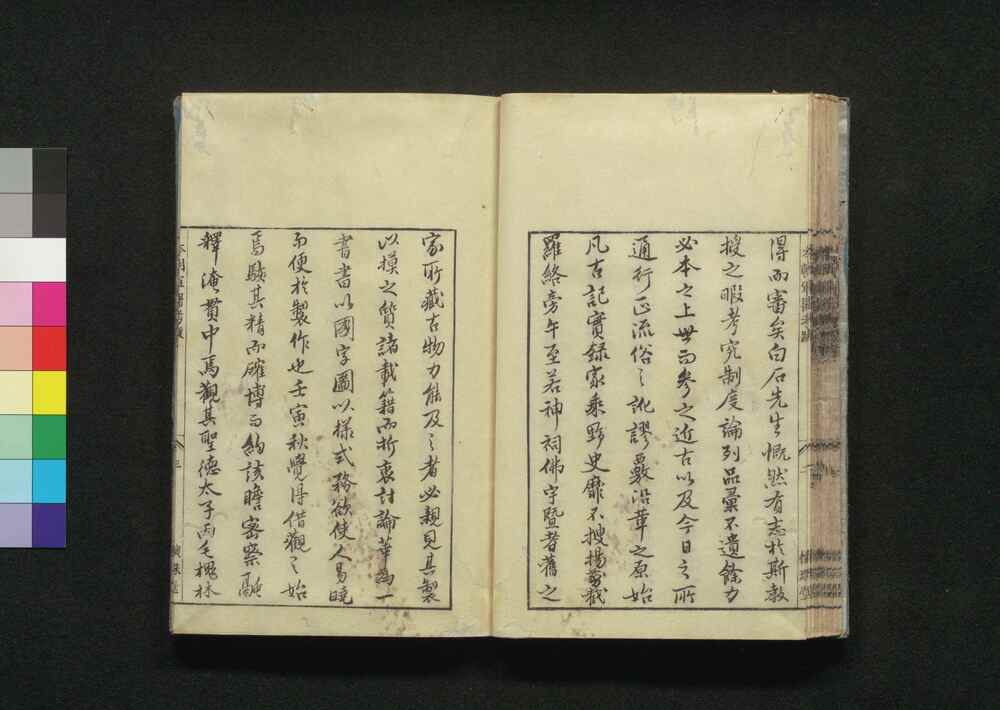 得而審矣白石先生慨然有志於斯教
授之暇考究制度論列品彙不遺餘力
必本之上世而參之近古以及今日之所
通行正流俗之訛謬覈沿革之原始
凡古記實録家乘野史靡不搜揚裁
羅絡旁午至若神祠佛宇暨耆舊之
家所藏古物力能及之者必親見其製
以摸之質諸載籍而折衷討論華為一
書書以國字圖以樣式務欲使人易曉
而便於製作也壬寅秋覺得借觀之始
焉駭其精而確博而約該瞻密察
釋淹貫中焉觀其聖德太子丙毛槐林